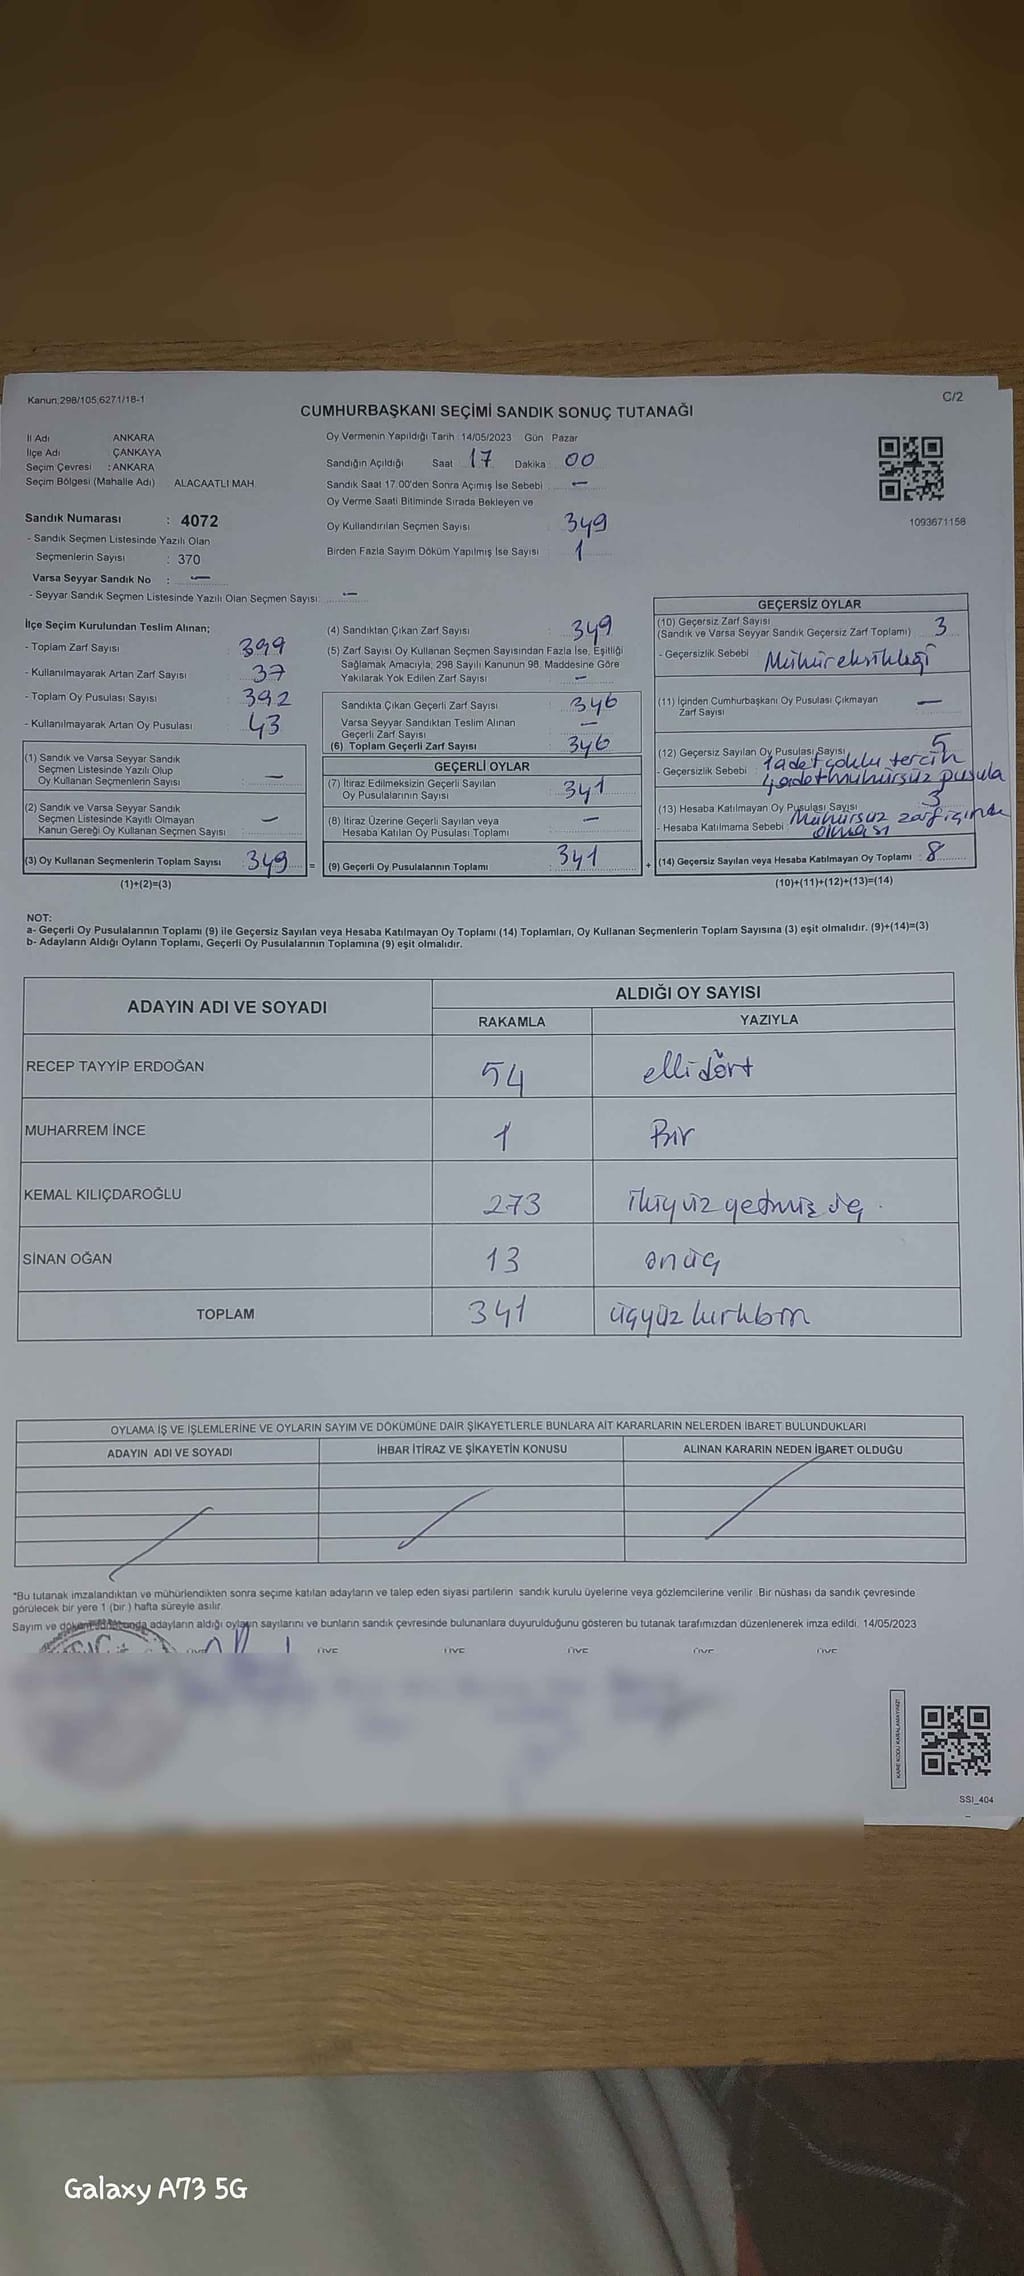 Kanun;298/105,6271/18-1
C/2
CUMHURBAŞKANI SEÇİMİ SANDIK SONUÇ TUTANAĞI
İl Adı ANKARA
İlçe Adı ÇANKAYA
Seçim Çevresi : ANKARA
Seçim Bölgesi (Mahalle Adı) ALACAATLI MAH.
Sandık Numarası : 4072
- Sandık Seçmen Listesinde Yazılı Olan
Seçmenlerin Sayısı : 370
Varsa Seyyar Sandık No : —
- Seyyar Sandık Seçmen Listesinde Yazılı Olan Seçmen Sayısı: —
Oy Vermenin Yapıldığı Tarih :14/05/2023 Gün Pazar
Sandığın Açıldığı Saat 17 Dakika 00
Sandık Saat 17.00'den Sonra Açımış İse Sebebi —
Oy Verme Saati Bitiminde Sırada Bekleyen ve
Oy Kullandırılan Seçmen Sayısı : 349
Birden Fazla Sayım Döküm Yapılmış İse Sayısı : 1
1093671158
İlçe Seçim Kurulundan Teslim Alınan;
- Toplam Zarf Sayısı : 399
- Kullanılmayarak Artan Zarf Sayısı : 37
- Toplam Oy Pusulası Sayısı : 392
- Kullanılmayarak Artan Oy Pusulası : 43
(1) Sandık ve Varsa Seyyar Sandık
Seçmen Listesinde Yazılı Olup
Oy Kullanan Seçmenlerin Sayısı : —
(2) Sandık ve Varsa Seyyar Sandık
Seçmen Listesinde Kayıtlı Olmayan
Kanun Gereği Oy Kullanan Seçmen Sayısı : —
(3) Oy Kullanan Seçmenlerin Toplam Sayısı : 349 =
(1)+(2)=(3)
(4) Sandıktan Çıkan Zarf Sayısı : 349
(5) Zarf Sayısı Oy Kullanan Seçmen Sayısından Fazla İse, Eşitliği
Sağlamak Amacıyla, 298 Sayılı Kanunun 98. Maddesine Göre
Yakılarak Yok Edilen Zarf Sayısı : —
Sandıkta Çıkan Geçerli Zarf Sayısı : 346
Varsa Seyyar Sandıktan Teslim Alınan
Geçerli Zarf Sayısı : —
(6) Toplam Geçerli Zarf Sayısı : 346
GEÇERLİ OYLAR
(7) İtiraz Edilmeksizin Geçerli Sayılan
Oy Pusulalarının Sayısı : 341
(8) İtiraz Üzerine Geçerli Sayılan veya
Hesaba Katılan Oy Pusulası Toplamı : —
(9) Geçerli Oy Pusulalarının Toplamı : 341 +
GEÇERSİZ OYLAR
(10) Geçersiz Zarf Sayısı
(Sandık ve Varsa Seyyar Sandık Geçersiz Zarf Toplamı) : 3
- Geçersizlik Sebebi : Mühür eksikliği
(11) İçinden Cumhurbaşkanı Oy Pusulası Çıkmayan
Zarf Sayısı : —
(12) Geçersiz Sayılan Oy Pusulası Sayısı 5
- Geçersizlik Sebebi : 1 adet çoklu tercih
4 adet mühürsüz pusula
(13) Hesaba Katılmayan Oy Pusulası Sayısı 3
- Hesaba Katılmama Sebebi : Mühürsüz zarf içinde
olması
(14) Geçersiz Sayılan veya Hesaba Katılmayan Oy Toplamı : 8
(10)+(11)+(12)+(13)=(14)
NOT:
a- Geçerli Oy Pusulalarının Toplamı (9) ile Geçersiz Sayılan veya Hesaba Katılmayan Oy Toplamı (14) Toplamları, Oy Kullanan Seçmenlerin Toplam Sayısına (3) eşit olmalıdır. (9)+(14)=(3)
b- Adayların Aldığı Oyların Toplamı, Geçerli Oy Pusulalarının Toplamına (9) eşit olmalıdır.
ADAYIN ADI VE SOYADI ALDIĞI OY SAYISI
RAKAMLA YAZIYLA
RECEP TAYYİP ERDOĞAN 54 elli dört
MUHARREM İNCE 1 Bir
KEMAL KILIÇDAROĞLU 273 ikiyüz yetmiş üç
SİNAN OĞAN 13 onüç
TOPLAM 341 üçyüz kırkbir
OYLAMA İŞ VE İŞLEMLERİNE VE OYLARIN SAYIM VE DÖKÜMÜNE DAİR ŞİKAYETLERLE BUNLARA AİT KARARLARIN NELERDEN İBARET BULUNDUKLARI
ADAYIN ADI VE SOYADI İHBAR İTİRAZ VE ŞİKAYETİN KONUSU ALINAN KARARIN NEDEN İBARET OLDUĞU
*Bu tutanak imzalandıktan ve mühürlendikten sonra seçime katılan adayların ve talep eden siyasi partilerin sandık kurulu üyelerine veya gözlemcilerine verilir. Bir nüshası da sandık çevresinde
görülecek bir yere 1 (bir ) hafta süreyle asılır.
Sayım ve döküm sonucunda adayların aldığı oyların sayılarını ve bunların sandık çevresinde bulunanlara duyurulduğunu gösteren bu tutanak tarafımızdan düzenlenerek imza edildi. 14/05/2023
ÜYE ÜYE ÜYE ÜYE ÜYE ÜYE
KARE KODU KARALAMAYINIZ!
SSI_404
Galaxy A73 5G